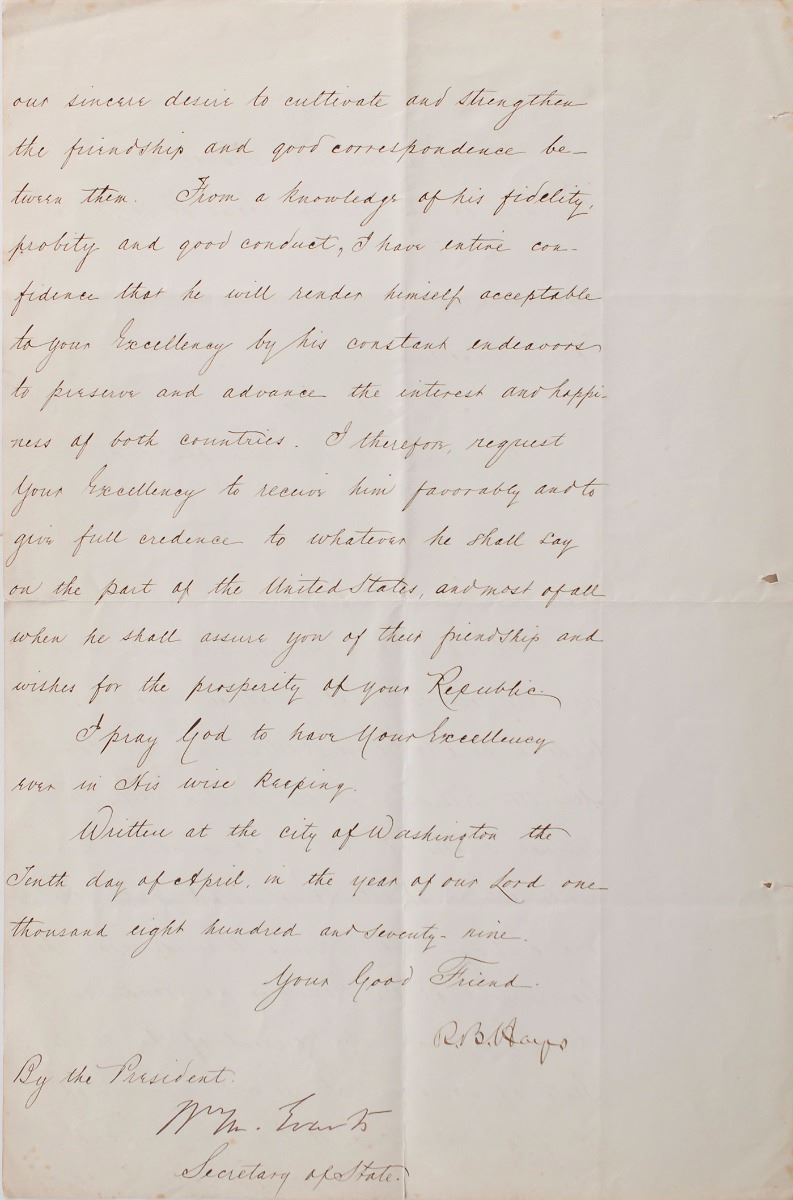 our sincere desire to cultivate and strengthen
the friendship and good correspondence be-
tween them. From a knowledge of his fidelity,
probity and good conduct, I have entire con-
fidence that he will render himself acceptable
to your Excellency by his constant endeavors
to preserve and advance the interest and happi-
ness of both countries. I therefore, request
Your Excellency to receive him favorably and to
give full credence to whatever he shall say
on the part of the United States, and most of all
when he shall assure you of their friendship and
wishes for the prosperity of your Republic.
I pray God to have Your Excellency
ever in His wise keeping.
Written at the city of Washington the
Tenth day of April, in the year of our Lord one
thousand eight hundred and seventy-nine.
Your Good Friend.
R. B. Hayes
By the President.
Wm M. Evarts
Secretary of State.